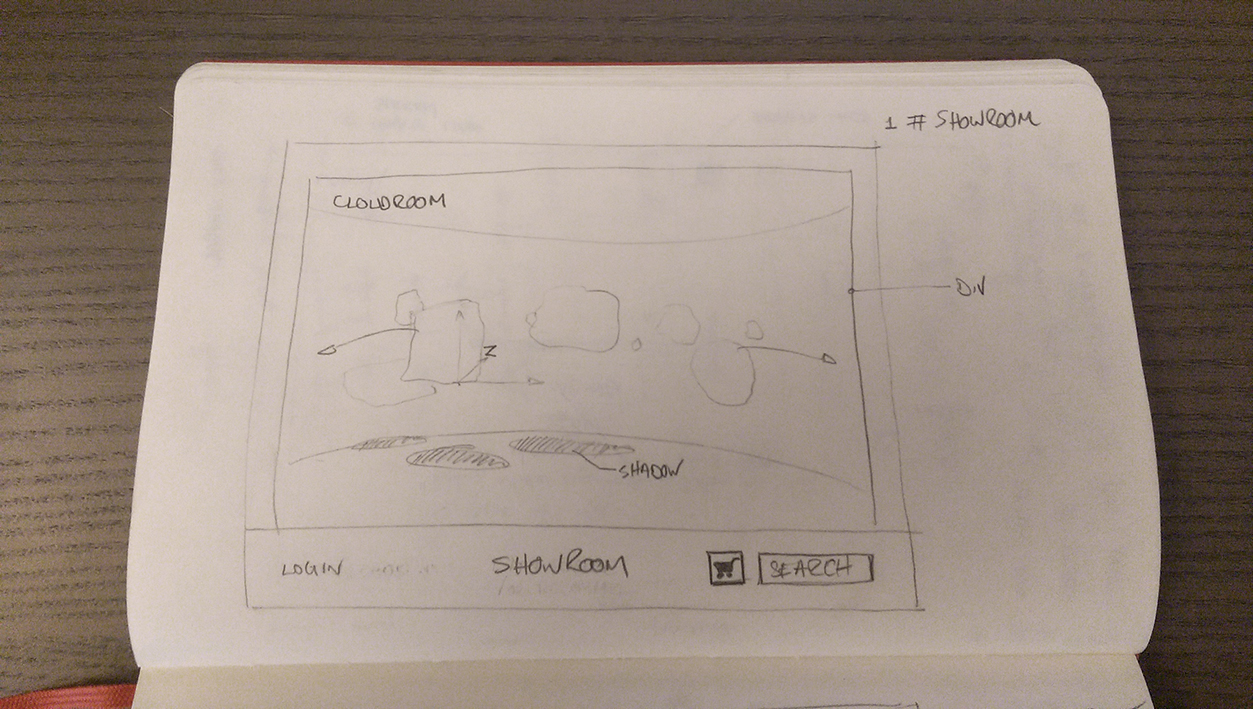 1 # SHOWROOM
CLOUDROOM
DIV
Z
SHADOW
LOGIN
SHOWROOM
SEARCH